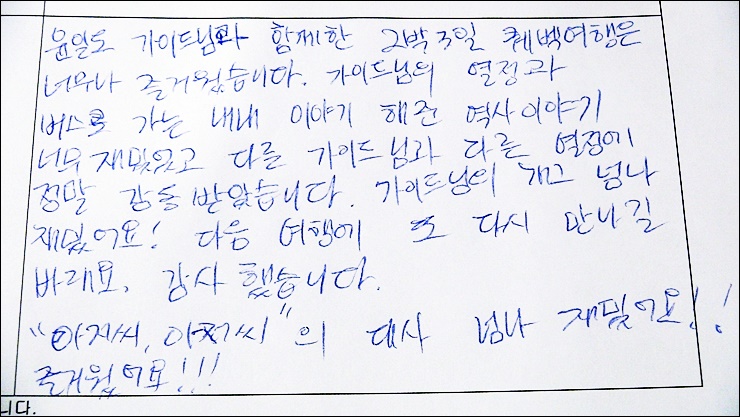 윤일도 가이드님과 함께한 2박3일 퀘벡여행은
너무나 즐거웠습니다. 가이드님의 열정과
버스로 가는 내내 이야기 해준 역사이야기
너무 재밌었고 다른 가이드님과 다른 열정에
정말 감동 받았습니다. 가이드님의 개그 넘나
재밌어요! 다음 여행에 또 다시 만나길
바래요. 감사 했습니다.
"아저씨, 아저씨"의 대사 넘나 재밌어요!!
즐거웠어요!!!
니다.